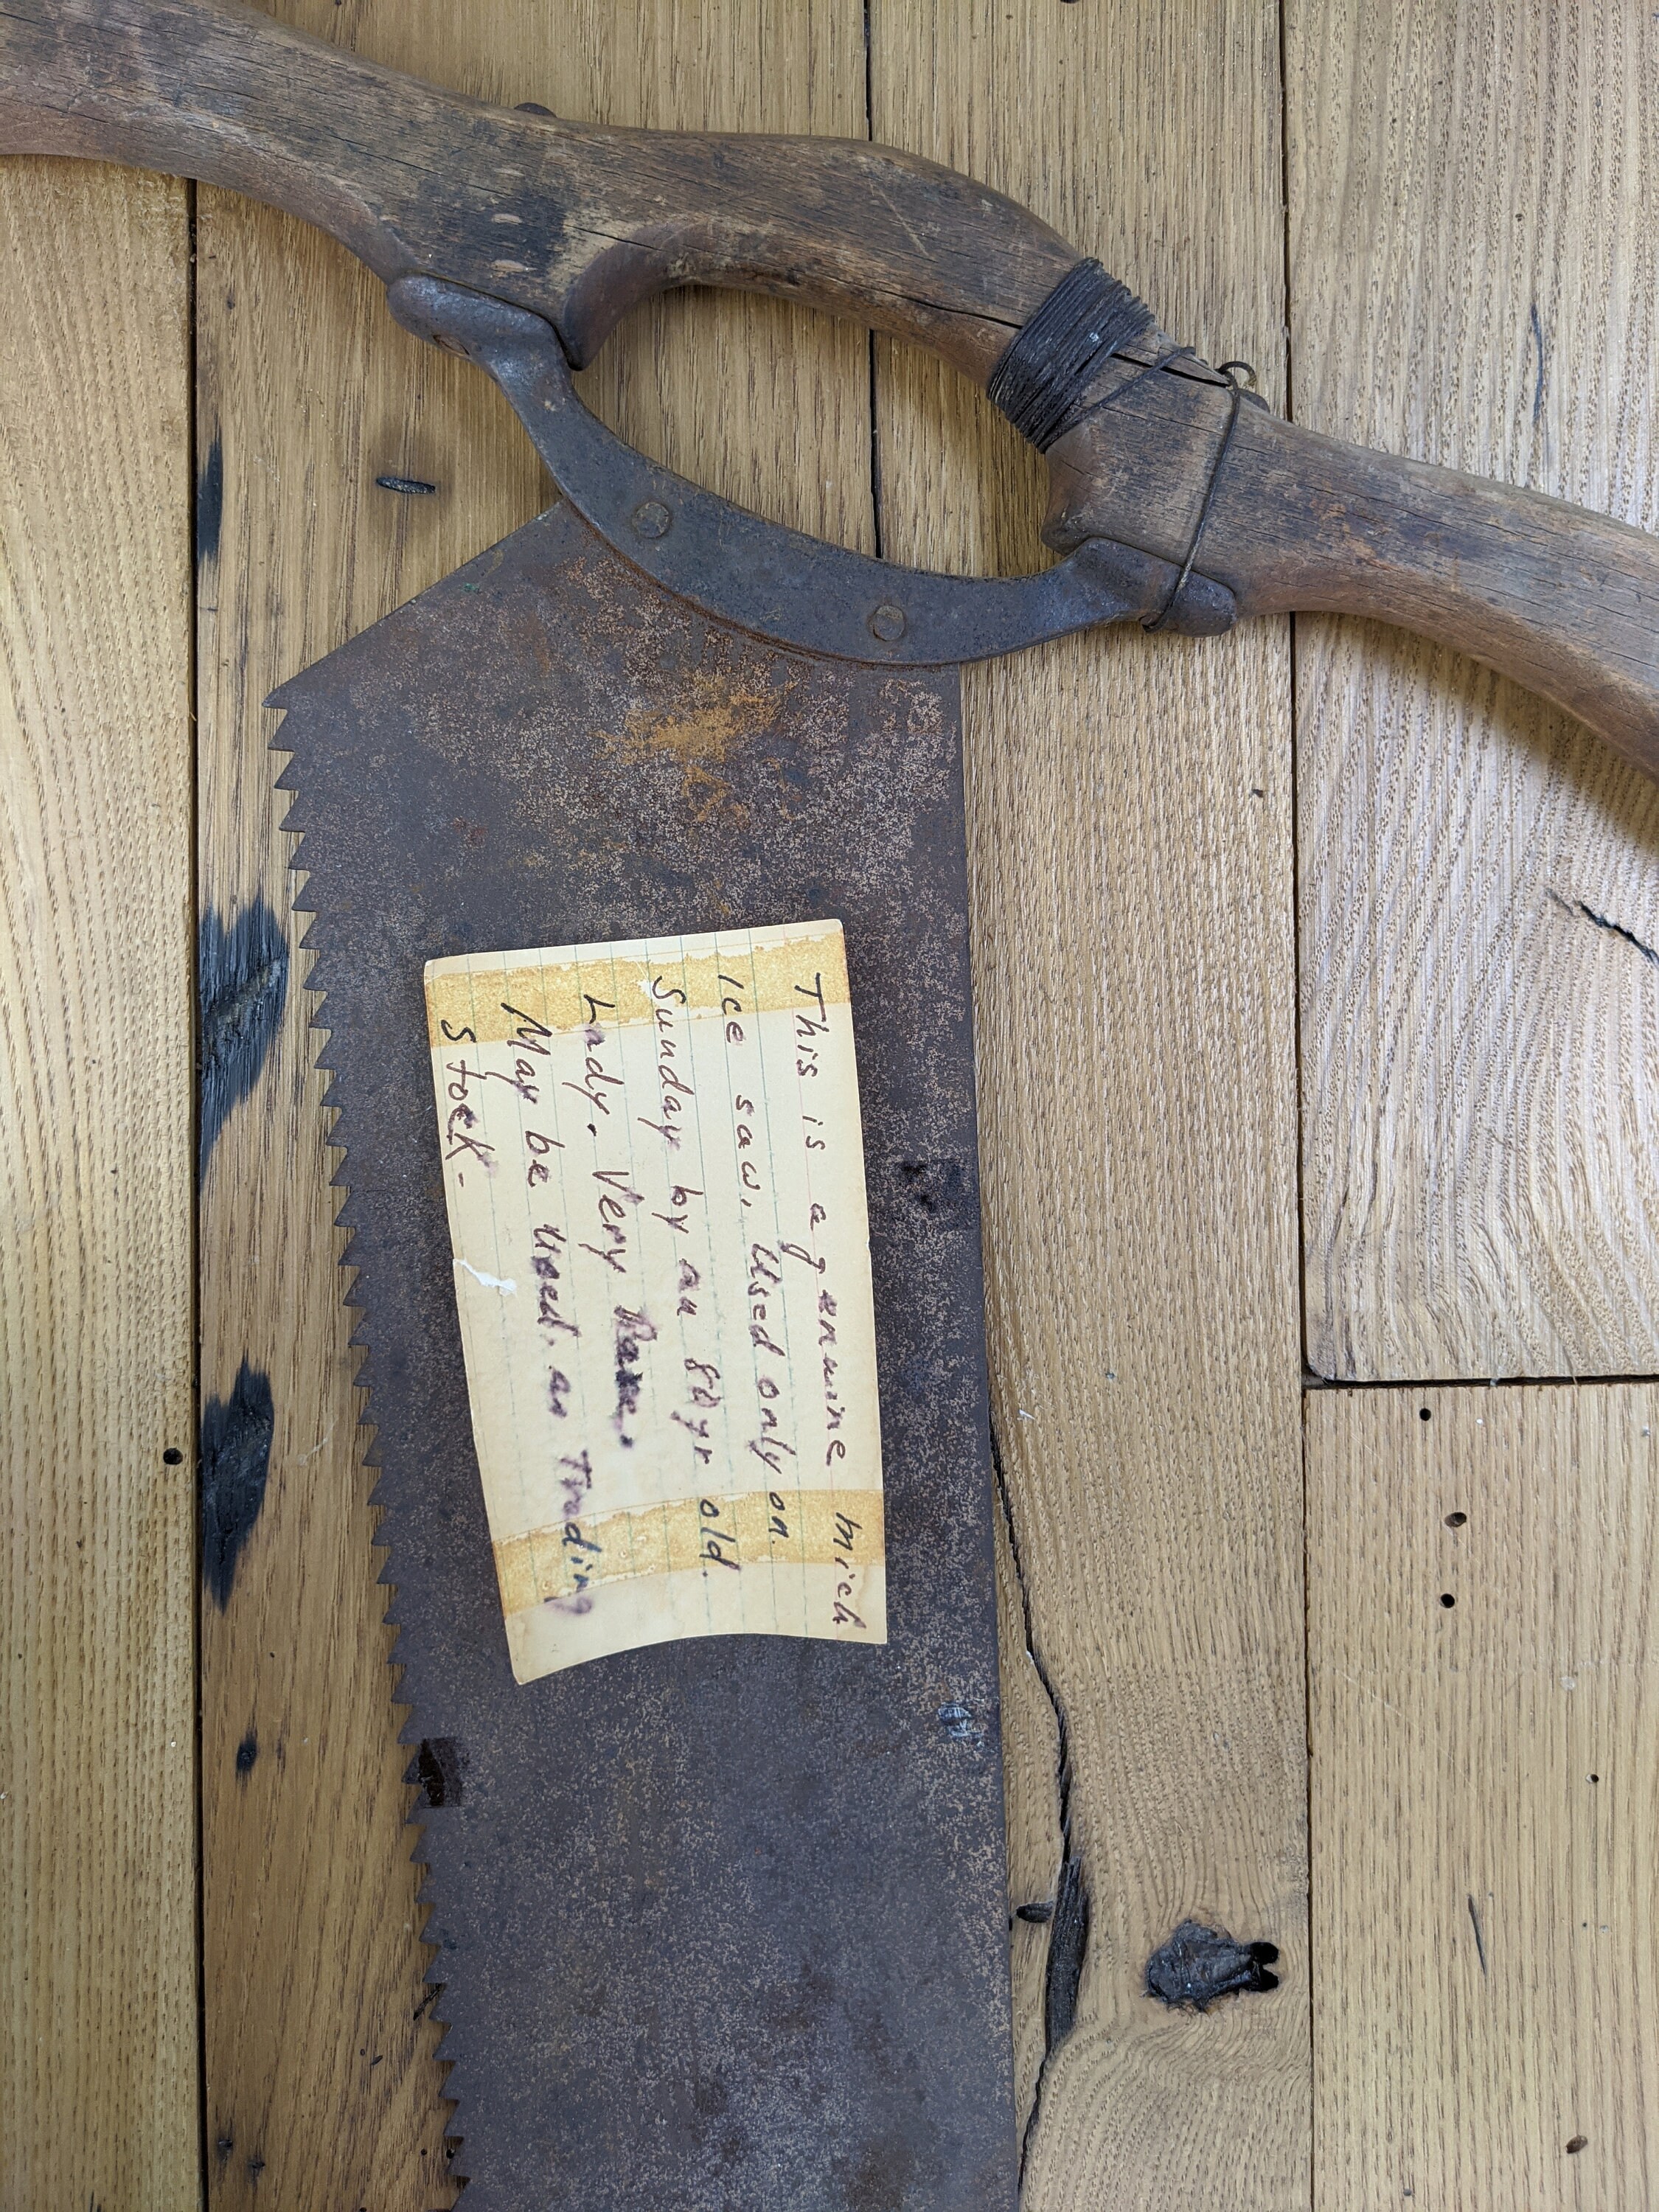 This is a genuine Mich
Ice saw. Used only on
Sunday by an 80 yr old.
Lady. Very Rare.
May be used as Trading
Stock-